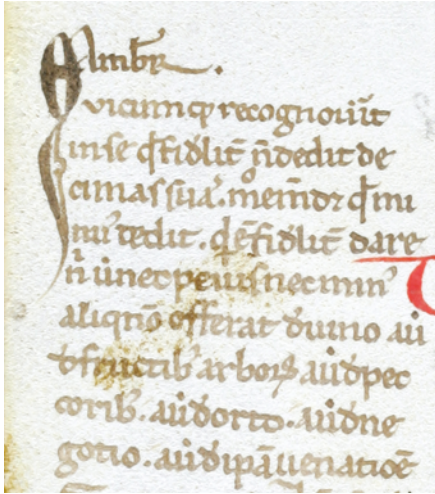 Ambr̄.
Quicumq; recognoverit
in se q̄ fidelit̄ ñ dedit de
cimas suas. mo em̄dꝫ q̄ mi
nus dedit. q̄ ē fidelit̄ dare
ñ ut nec peius nec min᷒
aliqñ offerat de vino aut
de fructib; arboꝝ aut de pec
corib;. aut de orto. aut de ne
gotio. aut de ipa venatiōe